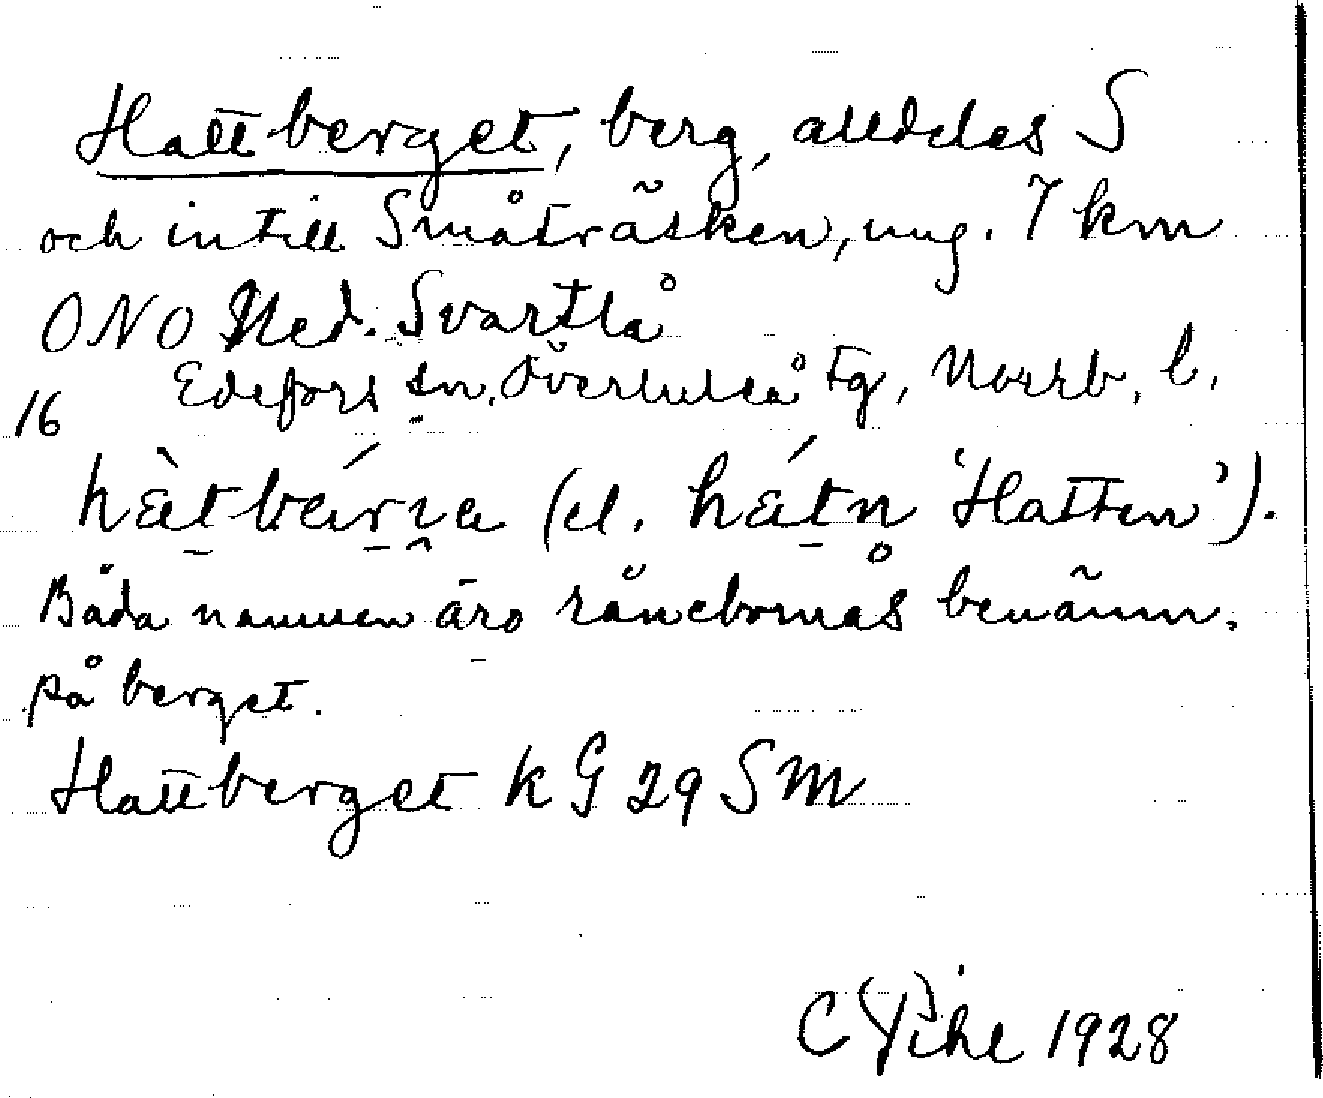 Hattberget, berg, alldeles S
och intill Småträsken, ung. 7 km
ONO Ned. Svartlå
Edefors sn, Överluleå tg, Norrb. l.
16
hàtbárja (el. hátn 'Hatten').
Båda namnen äro rånebornas benämn.
på berget.
Hattberget KG 29 SM
C Pihl 1928